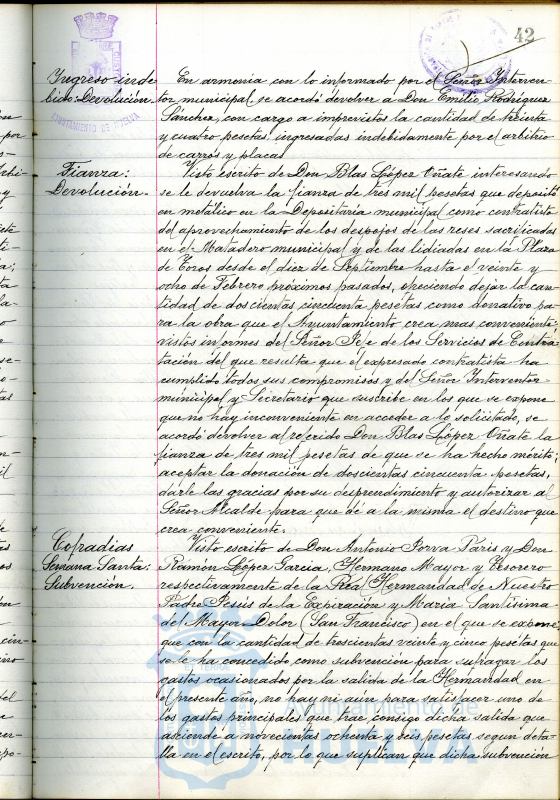 42
Ingreso inde
bido: Devolución.
AYUNTAMIENTO DE HUELVA
En armonía con lo informado por el Señor Interven-
tor municipal, se acordó devolver a Don Emilio Rodríguez
Sánchez, con cargo a imprevistos la cantidad de treinta
y cuatro pesetas, ingresadas indebidamente por el arbitrio
de carros y placas
Fianza:
Devolución.
Visto escrito de Don Blas López Oñate interesando
se le devuelva la fianza de tres mil pesetas que depositó
en metálico en la Depositaria municipal como contratista
del aprovechamiento de los despojos de las reses sacrificadas
en el Matadero municipal y de las lidiadas en la Plaza
de Toros desde el diez de Septiembre hasta el veinte y
ocho de Febrero próximos pasados, ofreciendo dejar la can-
tidad de doscientas cincuenta pesetas como donativo pa-
ra la obra que el Ayuntamiento crea mas conveniente
vistos informes del Señor Jefe de los Servicios de Contra
tación del que resulta que el expresado contratista ha
cumplido todos sus compromisos y del Señor Interventor
municipal y Secretario que suscribe en los que se expone
que no hay inconveniente en acceder a lo solicitado, se
acordó devolver al referido Don Blas López Oñate la
fianza de tres mil pesetas de que se ha hecho mérito;
aceptar la donación de doscientas cincuenta pesetas,
darle las gracias por su desprendimiento y autorizar al
Señor Alcalde para que dé a la misma el destino que
crea conveniente.
Cofradias
Semana Santa:
Subvención.
Visto escrito de Don Antonio Jorva Paris y Don
Ramón López García, Hermano Mayor y Tesorero
respectivamente de la Real Hermandad de Nuestro
Padre Jesús de la Expiración y María Santísima
del Mayor Dolor (San Francisco) en el que se expone
que con la cantidad de trescientas veinte y cinco pesetas que
se le ha concedido, como subvención para sufragar los
gastos ocasionados por la salida de la Hermandad en
el presente año, no hay ni aún para satisfacer uno de
los gastos principales que trae consigo dicha salida que
asciende a novecientas ochenta y seis pesetas según deta-
lla en el escrito, por lo que suplican que dicha subvención
Ayuntamiento de
HUELVA